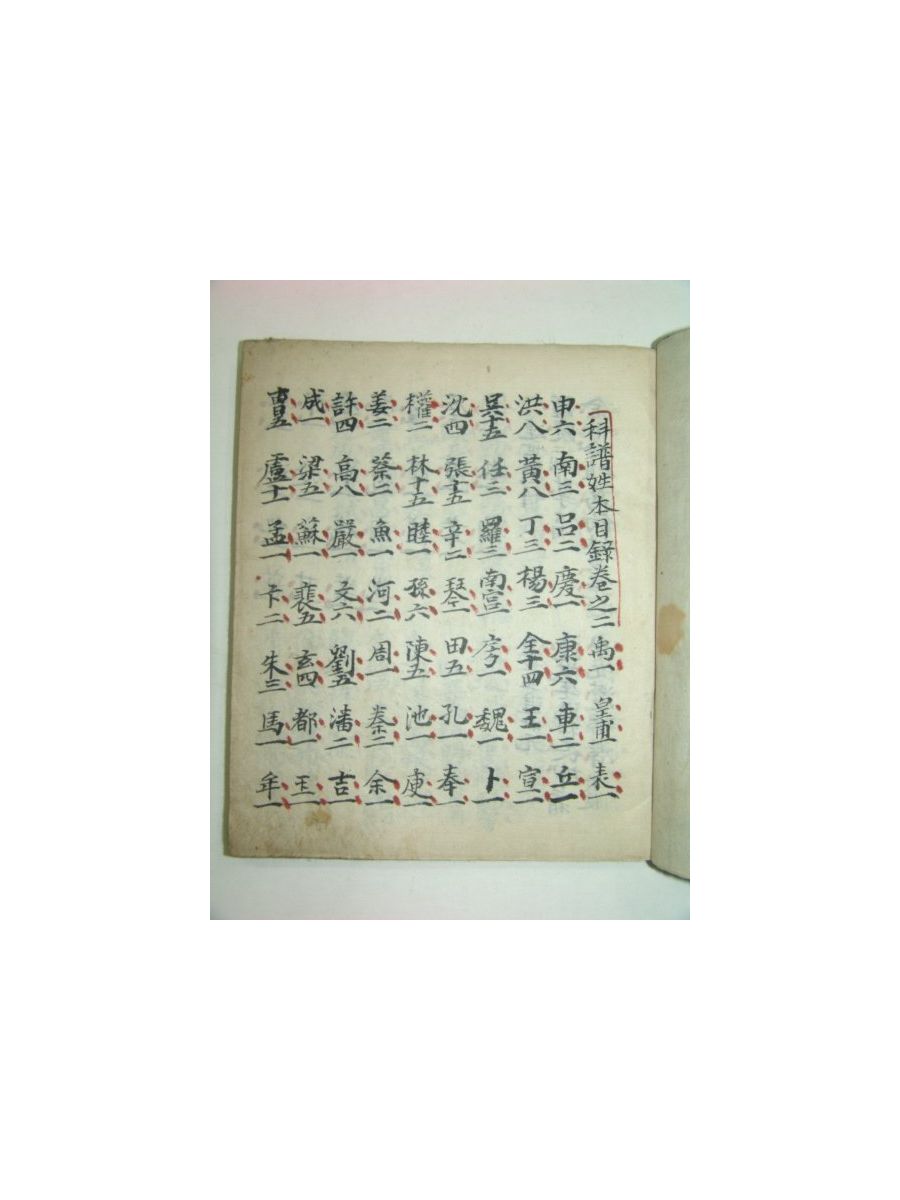 科譜姓本目錄卷之二 禹一 皇甫一 表一
申六 南三 呂二 慶一 康六 車二 丘一
洪八 黃八 丁三 楊三 全十四 王一 宣二
吳十五 任三 羅三 南宮一 房一 魏一 卜一
沈四 張十五 辛二 琴一 田五 孔一 奉一
權二 林十五 睦一 孫六 陳五 池一
姜三 蔡二 魚一 河二 周一 秦二 余一
許四 高八 嚴一 文六 劉五 潘二 吉一
成一 梁五 蘇一 裵五 玄四 都一 玉一
曺五 盧十一 孟一 卞二 朱三 馬一 牟一